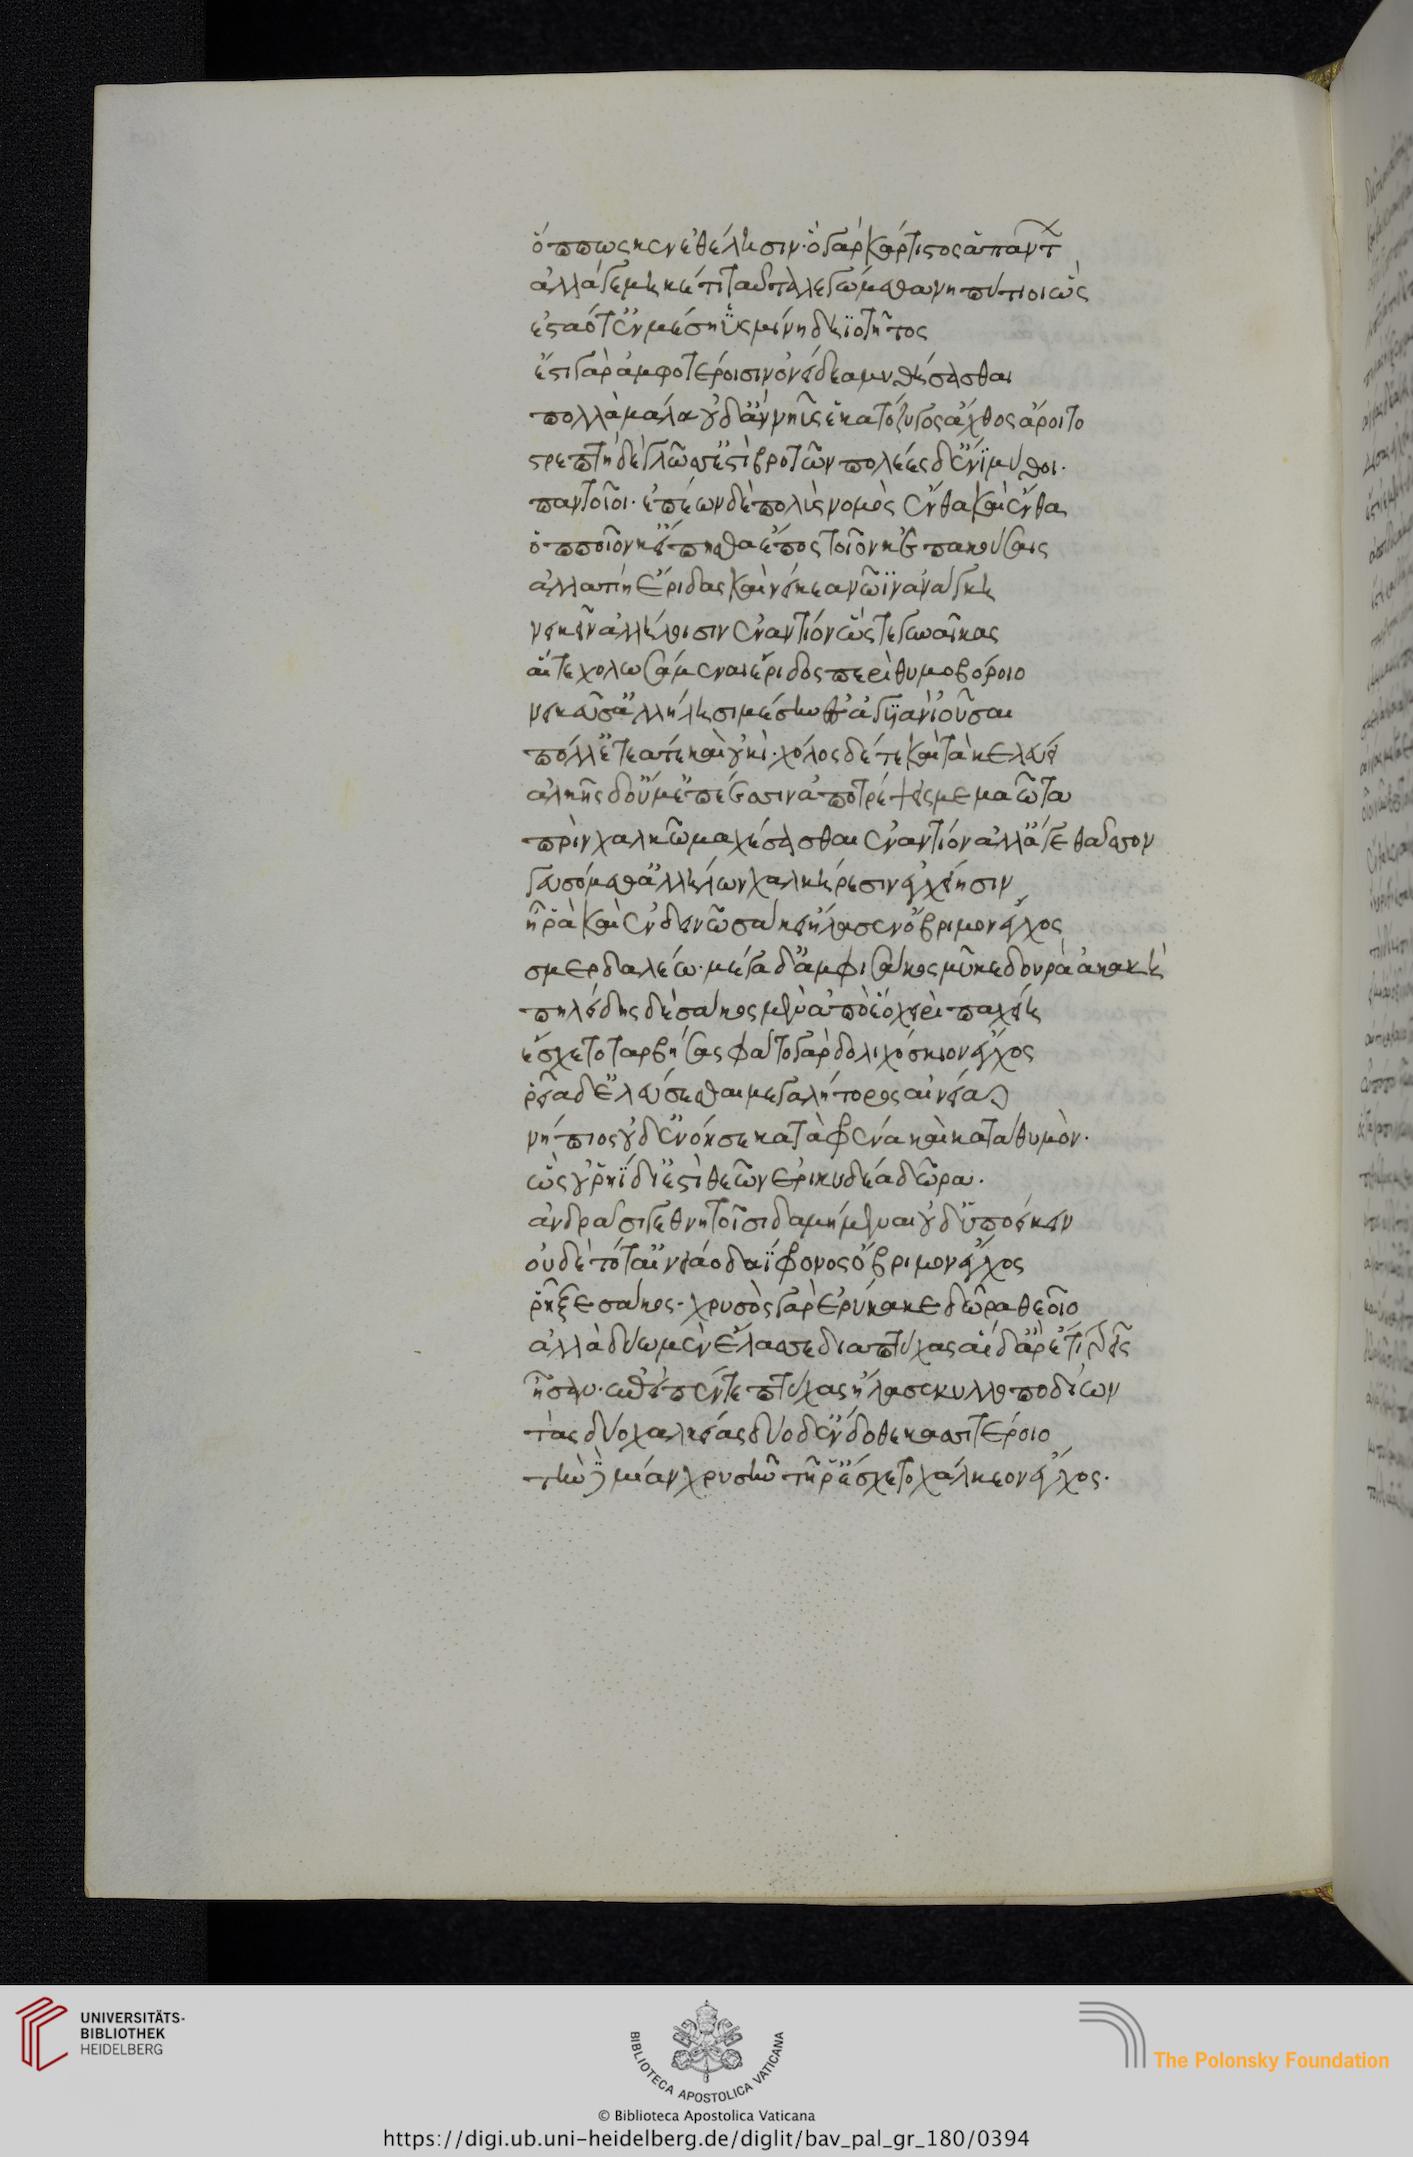 ὅππως κεν ἐθέλησιν· ὁ γὰρ κάρτιστος ἁπάντων
ἀλλάγε μηκέτι ταῦτα λεγώμεθα νηπύτιοι ὣς
ἑσταότ' ἐν μέσηϋσμίνη δηϊοτῆτος
ἔστι γὰρ ἀμφοτέροισιν ὀνείδεα μυθήσασθαι
πολλὰ μάλα οὐδ' ἂν νηῦς ἑκατόζυγος ἄχθος ἄροιτο
στρεπτὴ δὲ γλῶσσ' ἐστὶ βροτῶν πολέες δ' ἔνϊ μύθοι·
παντοῖοι· ἐπέων δὲ πολὺς νομὸς ἔνθα καὶ ἔνθα
ὁπποῖον κ' εἴπησθα ἔπος τοῖον κ' ἐπακούσαις
ἀλλατίη ἔριδας καὶ νείκεα νῶϊν ἀνάγκη
νεικεῖν ἀλλήλοισιν ἐναντίον ὥς τε γυναῖκας
αἵτε χολωσάμεναι ἔριδος περὶ θυμοβόροιο
νεικεῦσ' ἀλλήλησι μέσην ἐς ἀγϋιὰν ἰοῦσαι
πόλλ' ἐτεατέ καὶ οὐκὶ· χόλος δέ τε καὶ τὰ κελεύει
ἀλκῆς δ' οὔ μ' ἐπέεσσιν ἀποτρέψεις μεμαῶτα
πρὶν χαλκῶ μαχέσασθαι ἐναντίον ἀλλ' ἄγε θᾶσσον
γευσόμεθ' ἀλλήλων χαλκήρεσιν ἐγχείησιν
ἦ ῥὰ καὶ ἐν δεινῶ σάκει ἤλασεν ὄβριμον ἔγχος
σμερδαλέω· μέγα δ' ἀμφὶ σάκος μῦκε δουρὸς ἀκωκὴ
πηλείδης δὲ σάκος μὲν ἀπὸ ἕο χειρὶ παχείη
ἔσχετο ταρβήσας φάτο γὰρ δολιχόσκιον ἔγχος
ῥεῖα δ' ἐλεύσεσθαι μεγαλήτορος αἰνείαο
νήπιος οὐδ' ἐνόησε κατὰ φρένα καὶ κατὰ θυμὸν·
ὡς οὐ ῥηΐδι' ἐστὶ θεῶν ἐρικυδέα δῶρα·
ἀνδράσι γε θνητοῖσι δαμήμεναι οὐδ' ὑποείκειν
οὐδὲ τότ' αἰνείαο δαΐφρονος ὄβριμον ἔγχος
ῥῆξε σάκος· χρυσὸς γὰρ ἐρύκακε δῶρα θεοῖο
ἀλλὰ δύω μὲν ἔλασσε διαπτύχας αἱ δ' ἄρ' ἔτι τρεῖς
ἦσαν· ἐπεὶ πέντε πτύχας ἤλασε κυλλοποδίων
τὰς δύο χαλκείας δύο δ' ἔνδοθι κασσιτέροιο
τὴν δὲ μίαν χρυσῆν τῆ ῥ' ἔσχετο χάλκεον ἔγχος·
UNIVERSITÄTS-
BIBLIOTHEK
HEIDELBERG
BIBLIOTECA APOSTOLICA VATICANA
The Polonsky Foundation
© Biblioteca Apostolica Vaticana
https://digi.ub.uni-heidelberg.de/diglit/bav_pal_gr_180/0394